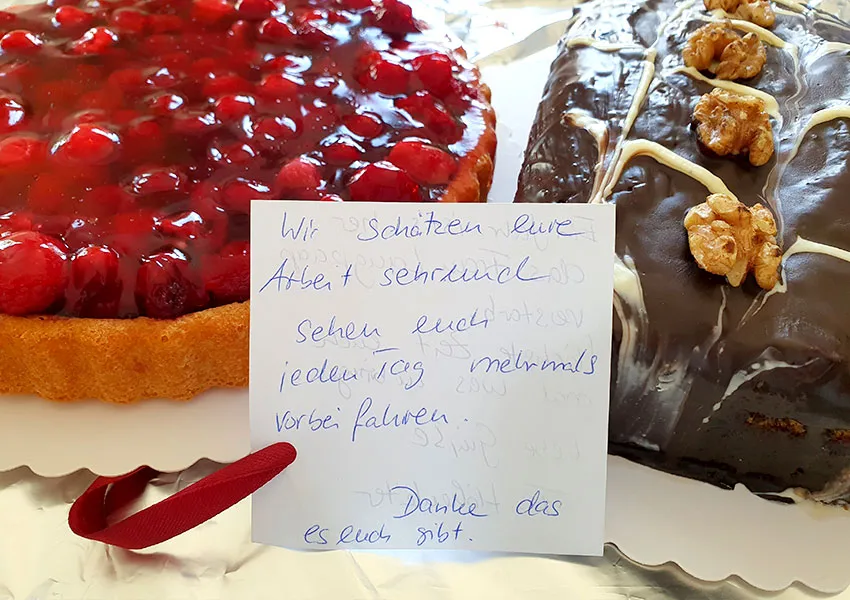 Wir schätzen eure
Arbeit sehr und
sehen euch
jeden Tag mehrmals
vorbei fahren.
Danke das
es euch gibt.